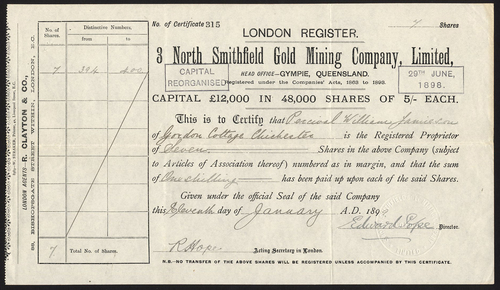 No. of Certificate 315
7 Shares
No. of Shares.
Distinctive Numbers.
from
to
7 394 400
7 Total No. of Shares.
LONDON AGENTS—R. CLAYTON & CO.,
BISHOPSGATE STREET WITHIN, LONDON, E.C.
LONDON REGISTER.
3 North Smithfield Gold Mining Company, Limited,
HEAD OFFICE—GYMPIE, QUEENSLAND.
Registered under the Companies' Acts, 1863 to 1893.
CAPITAL REORGANISED
29TH JUNE, 1898.
CAPITAL £12,000 IN 48,000 SHARES OF 5/- EACH.
This is to Certify that Percival William Jamieson
of Gordon Cottage Chichester is the Registered Proprietor
of Seven Shares in the above Company (subject
to Articles of Association thereof) numbered as in margin, and that the sum
of One shilling has been paid up upon each of the said Shares.
Given under the official Seal of the said Company
this Eleventh day of January A.D. 189
Edward Pope Director.
R Hope Acting Secretary in London.
N.B.—NO TRANSFER OF THE ABOVE SHARES WILL BE REGISTERED UNLESS ACCOMPANIED BY THIS CERTIFICATE.